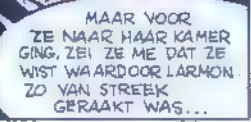 MAAR VOOR
ZE NAAR HAAR KAMER
GING, ZEI ZE ME DAT ZE
WIST WAARDOOR LARMON
ZO VAN STREEK
GERAAKT WAS...